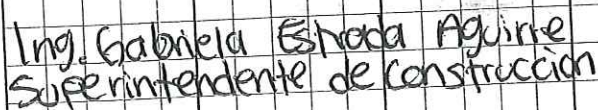 Ing. Gabriela Estrada Aguirre
Superintendente de construcción